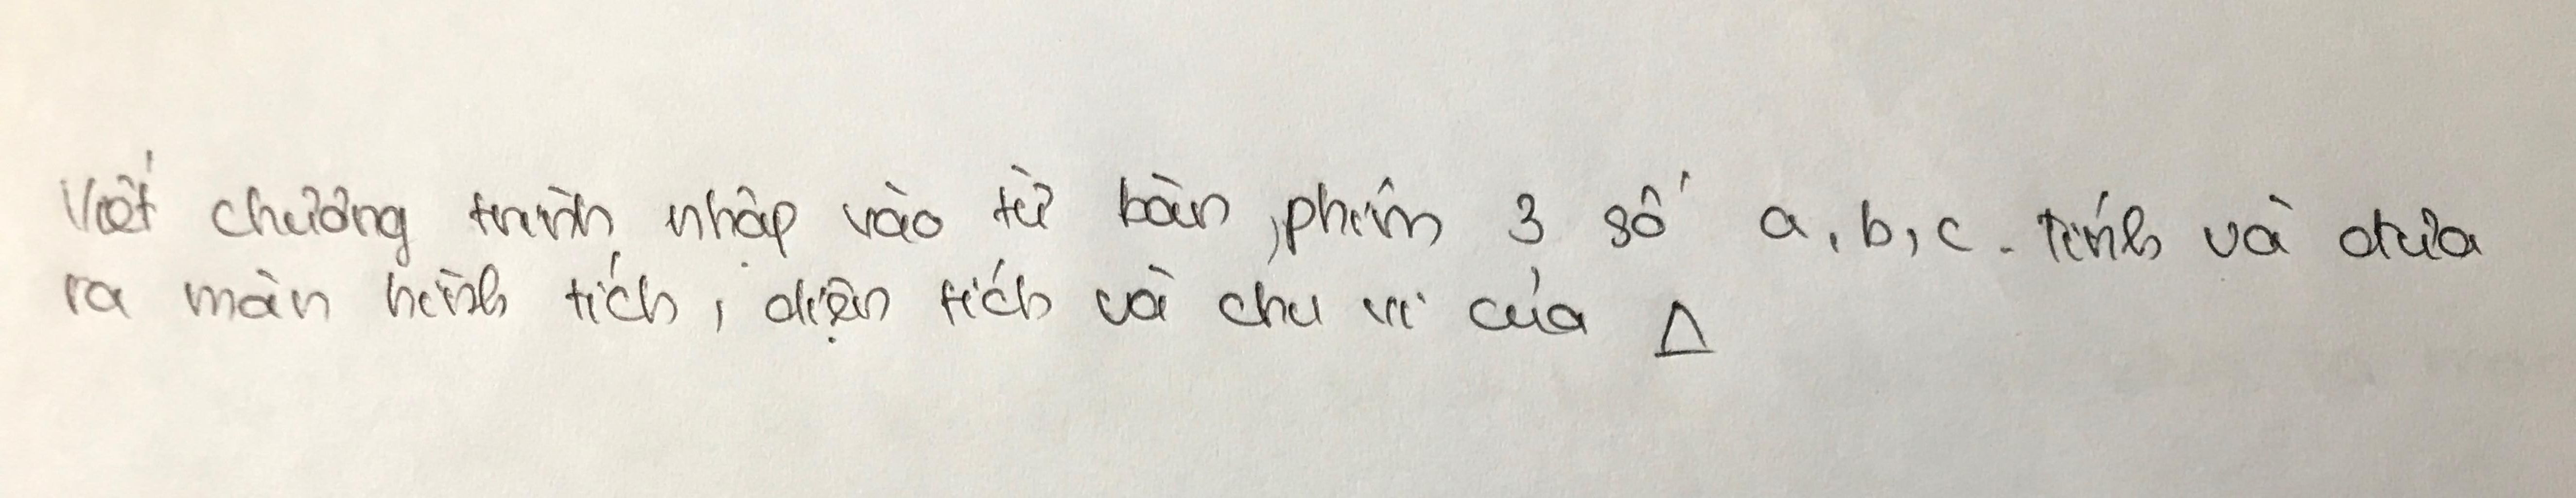 Viết chương trình nhập vào từ bàn phím 3 số a, b, c. Tính và đưa
ra màn hình tích, diện tích và chu vi của Δ